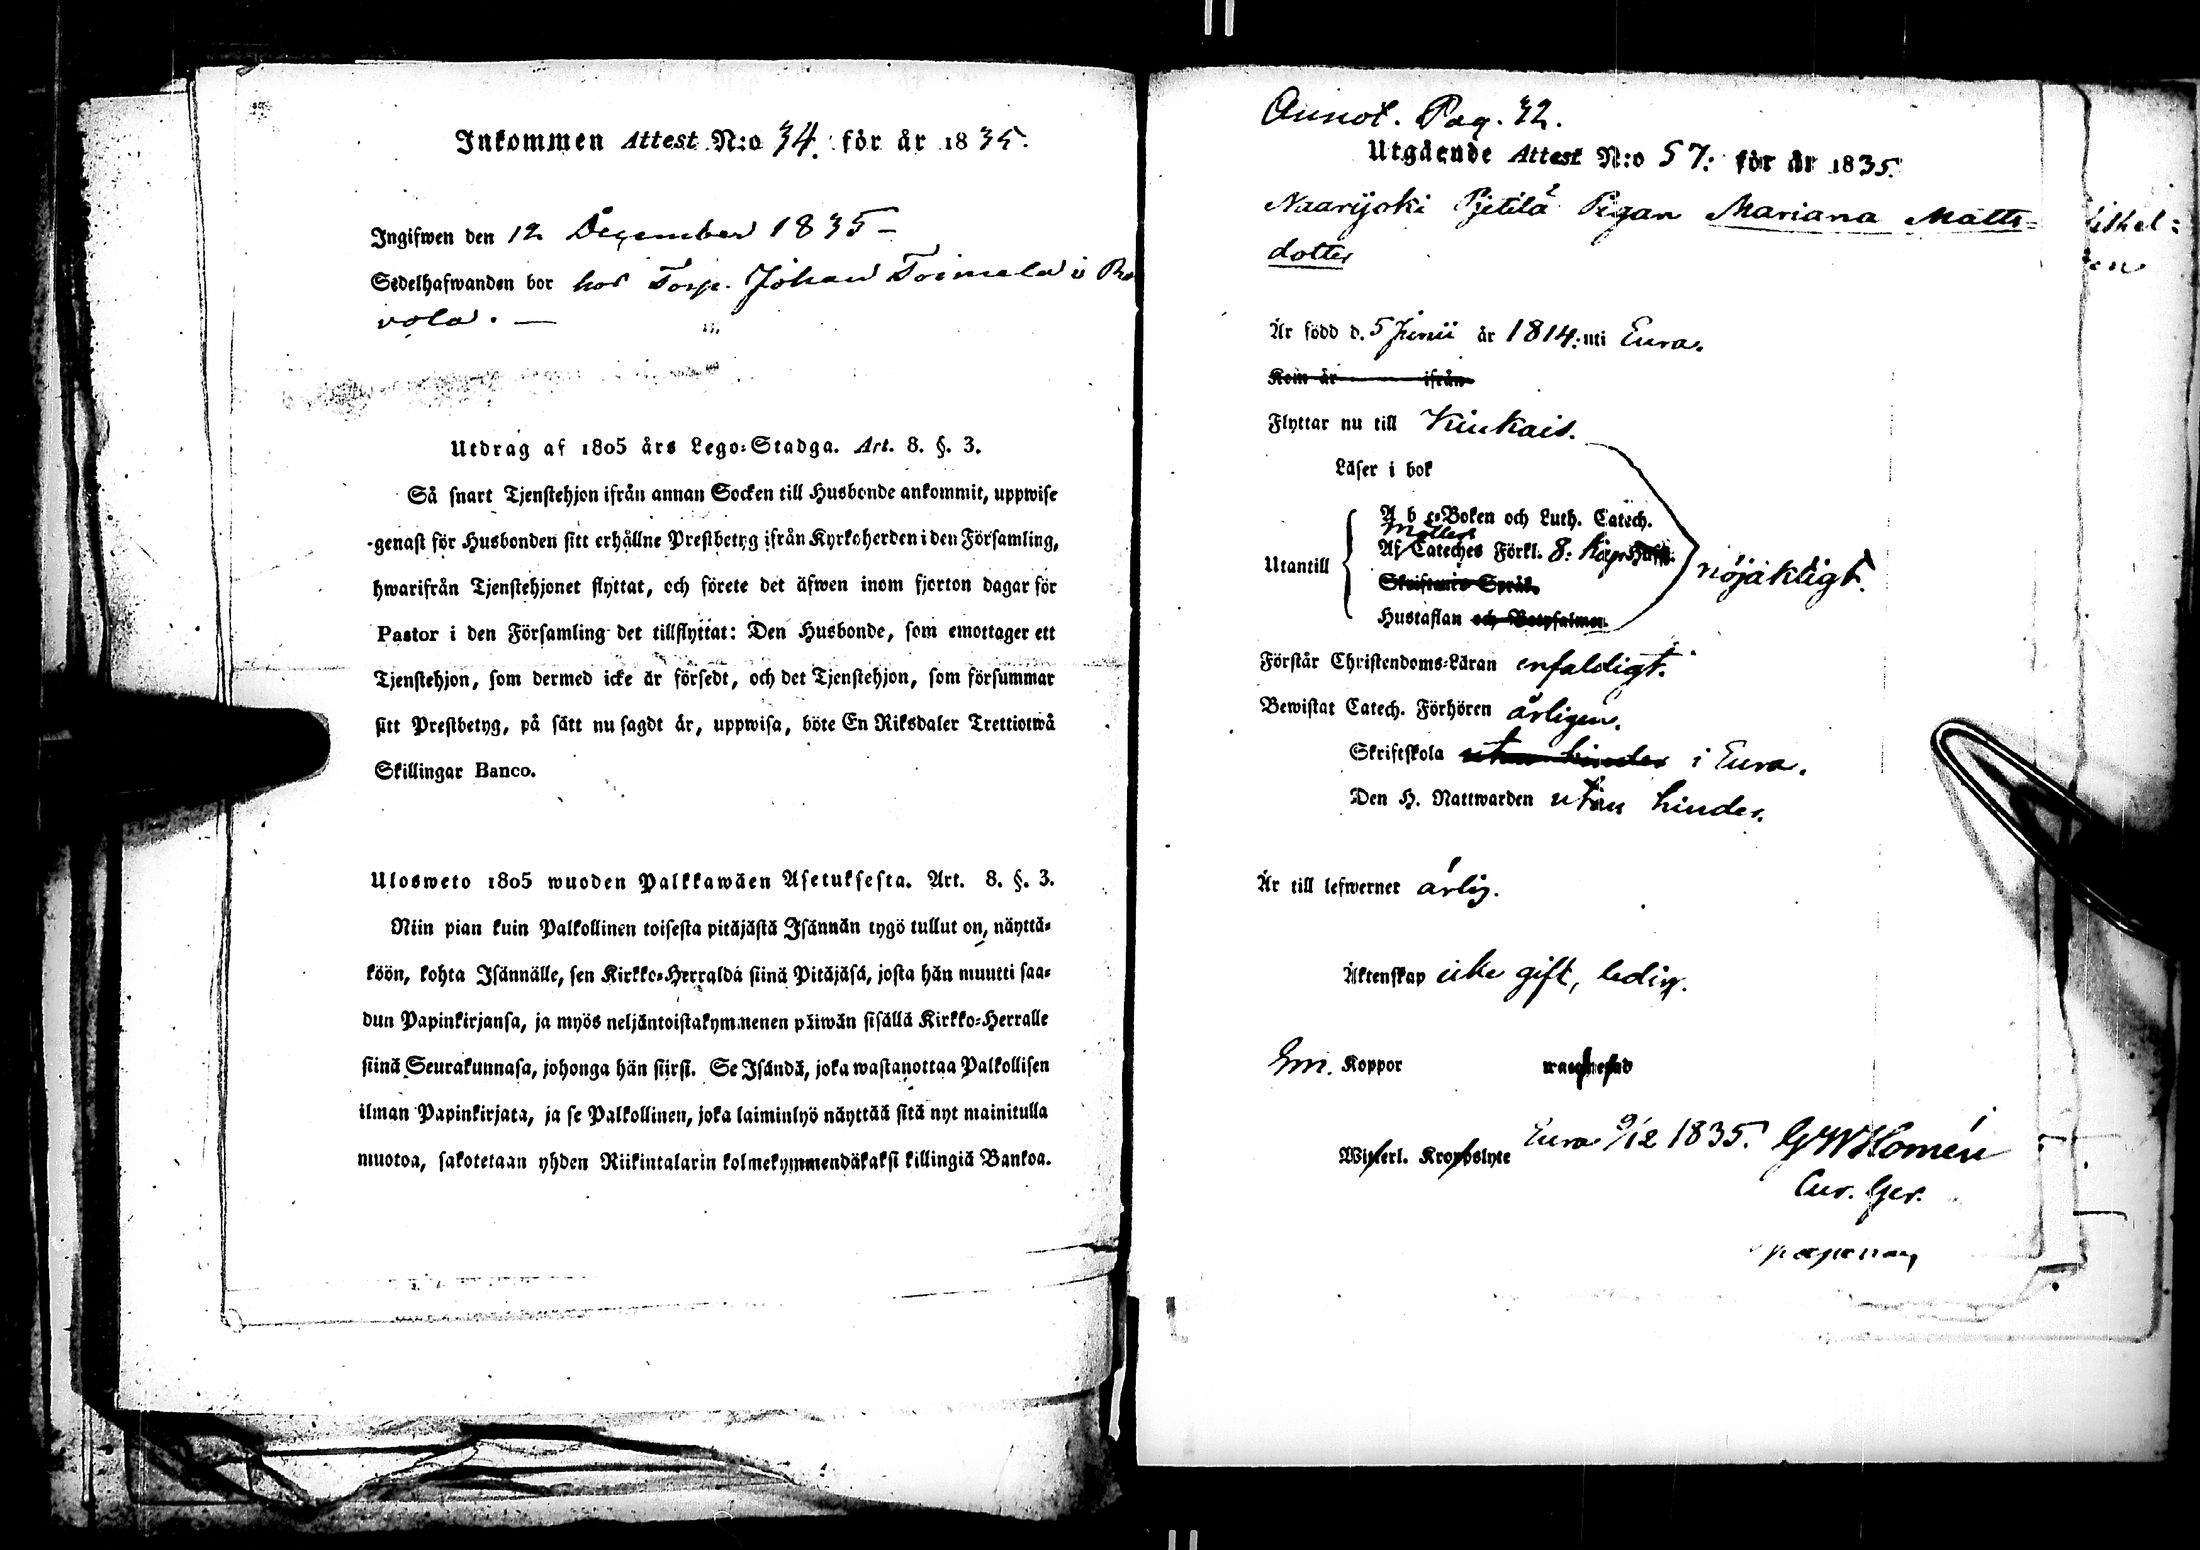 Inkommen Attest N:o 34. för år 1835.
Ingifwen den 12 December 1835 –
Sedelhafwanden bor hos Torp. Johan Toimela i
vola. —
Utdrag af 1805 års Lego-Stadga. Art. 8. §. 3.
Så snart Tjenstehjon ifrån annan Socken till Husbonde ankommit, uppwise
genast för Husbonden sitt erhållne Prestbetyg ifrån Kyrkoherden i den Församling,
hwarifrån Tjenstehjonet flyttat, och förete det äfwen inom fjorton dagar för
Pastor i den Församling det tillflyttat: Den Husbonde, som emottager ett
Tjenstehjon, som dermed icke är försedt, och det Tjenstehjon, som försummar
sitt Prestbetyg, på sätt nu sagdt är, uppwisa, böte En Riksdaler Trettiotwå
Skillingar Banco.
Ulosweto 1805 wuoden Palkkawäen Asetuksesta. Art. 8. §. 3.
Niin pian kuin Palkollinen toisesta pitäjästä Isännän tygö tullut on, näyttä-
köön, kohta Isännälle, sen Kirkko-Herralda siinä Pitäjäsä, josta hän muutti saa-
dun Papinkirjansa, ja myös neljäntoistakymmenen päiwän sisällä Kirkko-Herralle
siinä Seurakunnasa, johonga hän siirsi. Se Isändä, joka wastanottaa Palkollisen
ilman Papinkirjata, ja se Palkollinen, joka laiminlyö näyttää sitä nyt mainitulla
muotoa, sakotetaan yhden Riikintalarin kolmekymmendäkaksi killingiä Bankoa.
Annot. Pag. 32.
Utgående Attest N:o 57: för år 1835.
Naarijoki Pietilä Pigan Mariana Matts-
dotter
Är född d. 5 Junii år 1814: uti Eura.
Kom år ifrån
Flyttar nu till Kiukais.
Läser i bok
A b c-Boken och Luth. Catech.
Möllers
Af Cateches Förkl. 8: Kap.
Utantill
nöjaktigt.
Skriftenes Språk.
Hustaflan och Botpsalmer.
Förstår Christendoms-Läran enfaldigt.
Bewistat Catech. Förhören årligen.
Skriftskola utan hinder i Eura.
Den H. Nattwarden utan hinder.
Är till lefwernet ärlig.
Äktenskap icke gift, ledig.
Koppor
Witterl. Kroppslyte
Eura 9/12 1835. GWHomén
Cur. Ger.